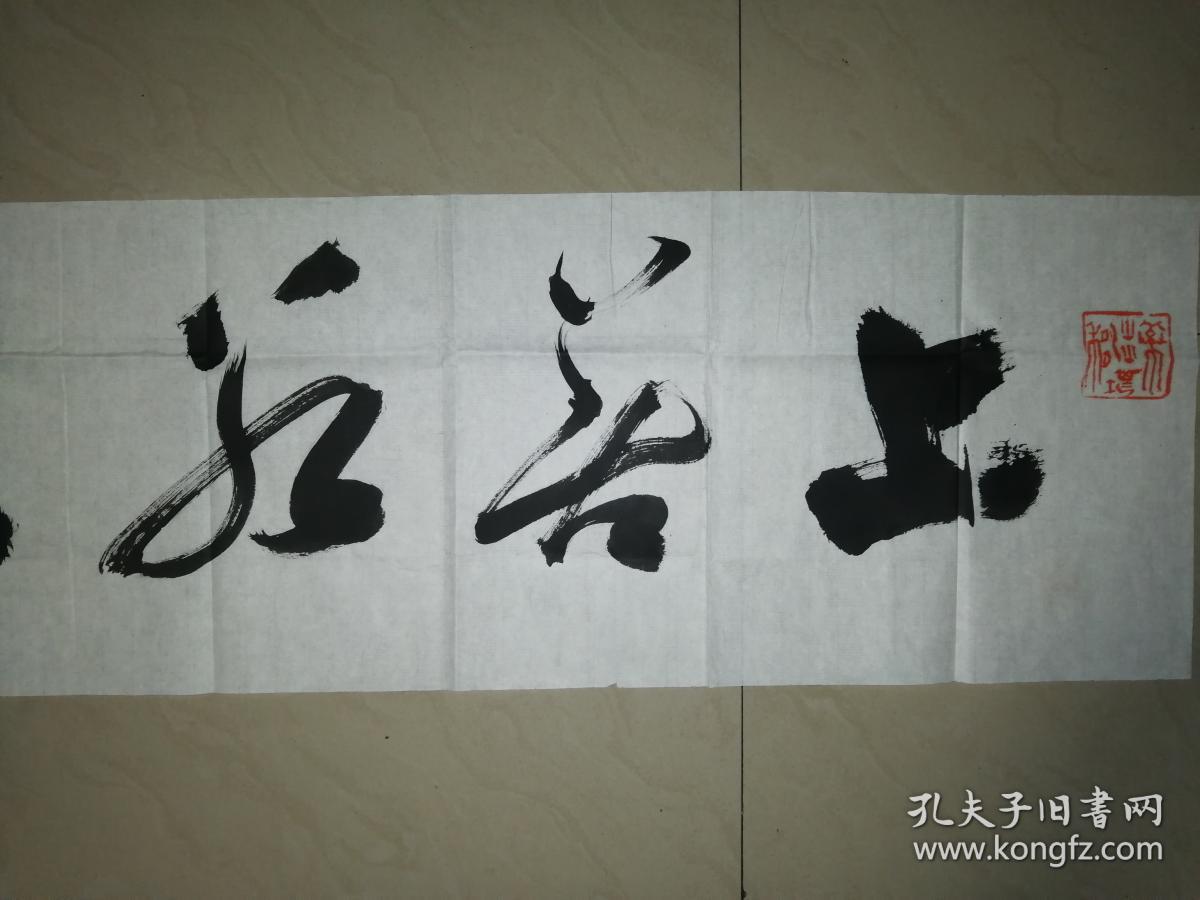 上善若
孔夫子旧書网
www.kongfz.com